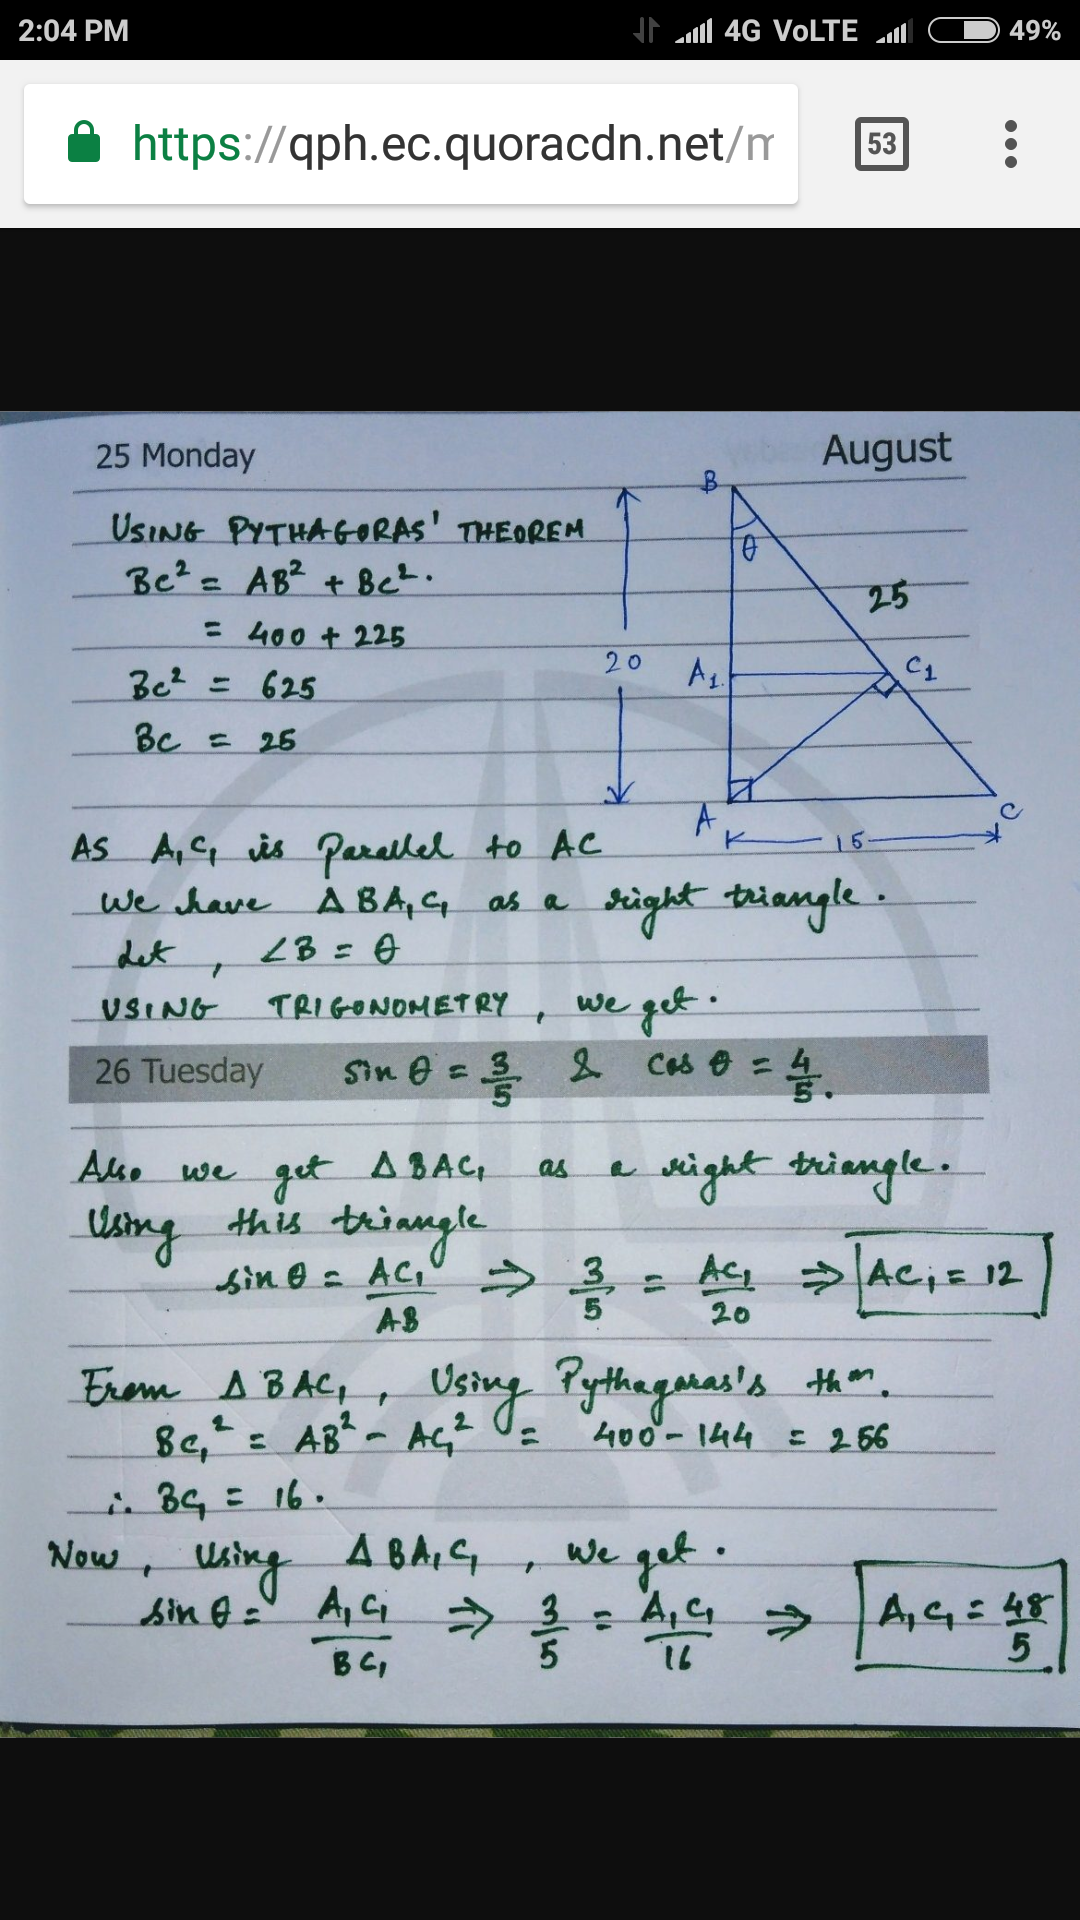 2:04 PM 4G VoLTE 49%
https://qph.ec.quoracdn.net/m 53
25 Monday August
USING PYTHAGORAS' THEOREM
BC² = AB² + BC².
= 400 + 225
BC² = 625
BC = 25
B
θ
25
20
A₁
C₁
A
C
15
AS A₁C₁ is Parallel to AC
We have Δ BA₁C₁ as a right triangle.
Let, ∠B = θ
USING TRIGONOMETRY, we get.
26 Tuesday sin θ = 3/5 & cos θ = 4/5.
Also we get Δ BAC₁ as a right triangle.
Using this triangle
sin θ = AC₁/AB ⇒ 3/5 = AC₁/20 ⇒ AC₁ = 12
From Δ BAC₁, Using Pythagoras's thm.
BC₁² = AB² - AC₁² = 400 - 144 = 256
∴ BC₁ = 16.
Now, Using Δ BA₁C₁, we get.
sin θ = A₁C₁/BC₁ ⇒ 3/5 = A₁C₁/16 ⇒ A₁C₁ = 48/5